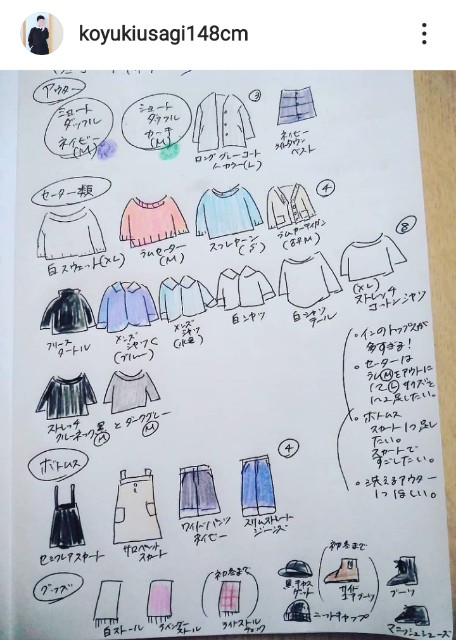 koyukiusagi148cm
アウター
ショート
ダッフル
ネイビー
(M)
ショート
ダッフル
カーキ
(M)
③
ロンググレーコート
ノーカラー(L)
ネイビー
ライトダウン
ベスト
セーター類
④
白スウェット(XL)
ラムセーター
(M)
ラムカーディガン
⑧
フリース
タートル
メンズ
シャツ
(ブルー)
メンズ
シャツ
(水色)
白シャツ
白シャツ
(XL)
ストレッチ
コットンシャツ
ストレッチ
クルーネック黒
Ⓜ
とダークグレー
Ⓜ
・インのトップスが
多すぎる!
・セーターは
ラムⓂをアウトに
1つ足したい。
・ボトムス
スカート1つ足し
たい。
スカートで
すごしたい。
・洗えるアウター
1つほしい。
ボトムス
④
サロペット
スカート
ワイドパンツ
ネイビー
スリムストレート
ジーンズ
グッズ
白ストール
ラベンダー
ストール
(初冬まで)
ライトストール
チェック
黒キャス
ケット
ニットキャップ
(初冬まで)
ブーツ
マニッシュシューズ